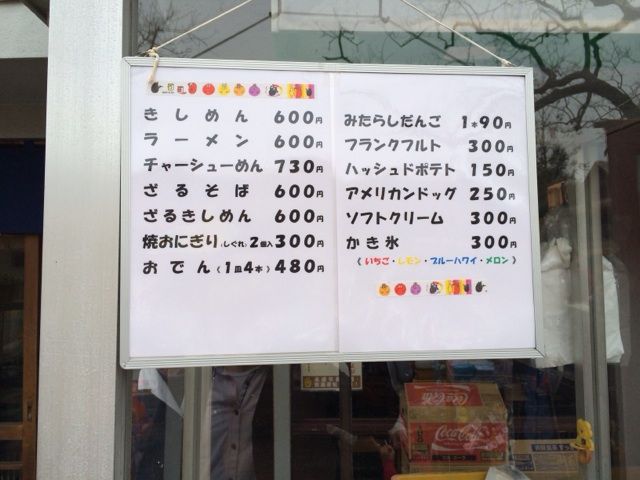 きしめん 600円
ラーメン 600円
チャーシューめん 730円
ざるそば 600円
ざるきしめん 600円
焼おにぎり(しぐれ)2個入300円
おでん(1皿4本)480円
みたらしだんご 1本90円
フランクフルト 300円
ハッシュドポテト 150円
アメリカンドッグ 250円
ソフトクリーム 300円
かき氷 300円
《いちご・レモン・ブルーハワイ・メロン》
Coca-Cola
Coca-Cola